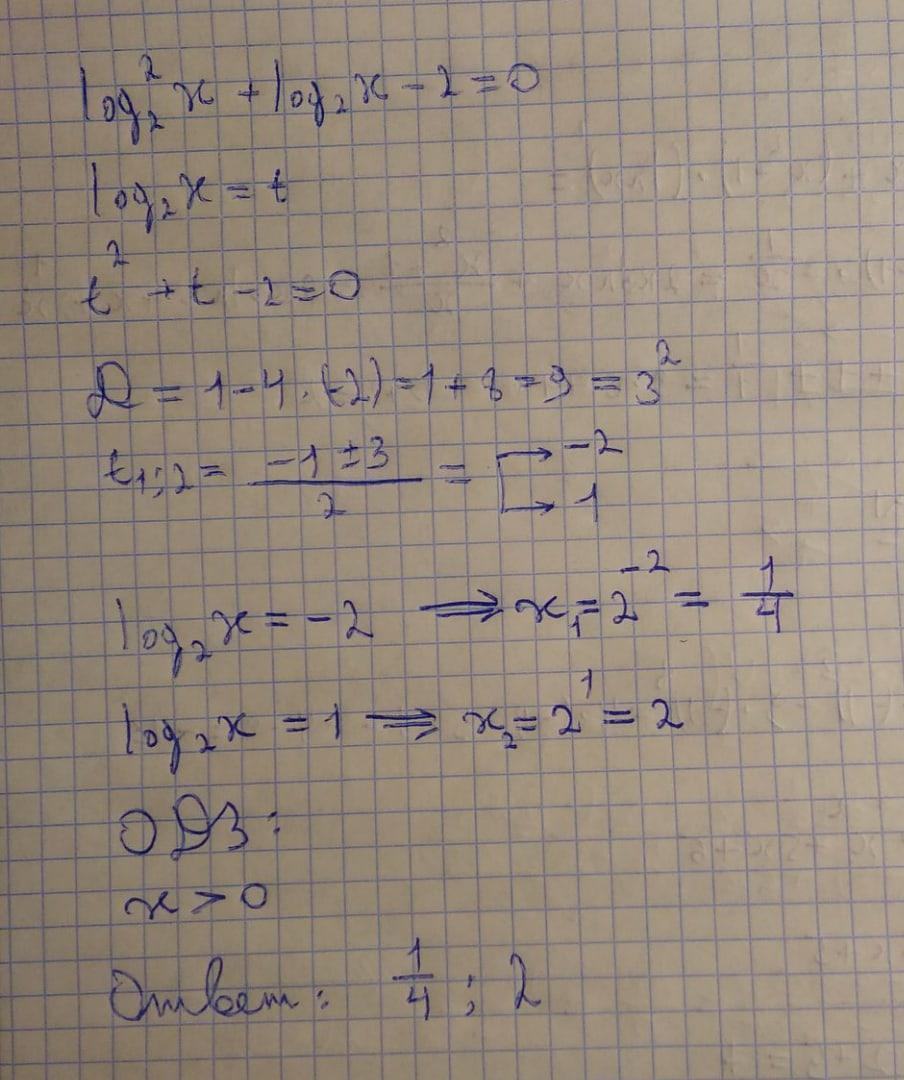 log₂² x + log₂ x - 2 = 0
log₂ x = t
t² + t - 2 = 0
D = 1 - 4 · (-2) = 1 + 8 = 9 = 3²
t₁;₂ = (-1 ± 3)/2 = → -2 → 1
log₂ x = -2 ⟹ x₁ = 2⁻² = 1/4
log₂ x = 1 ⟹ x₂ = 2¹ = 2
ОДЗ:
x > 0
Ответ: 1/4 ; 2